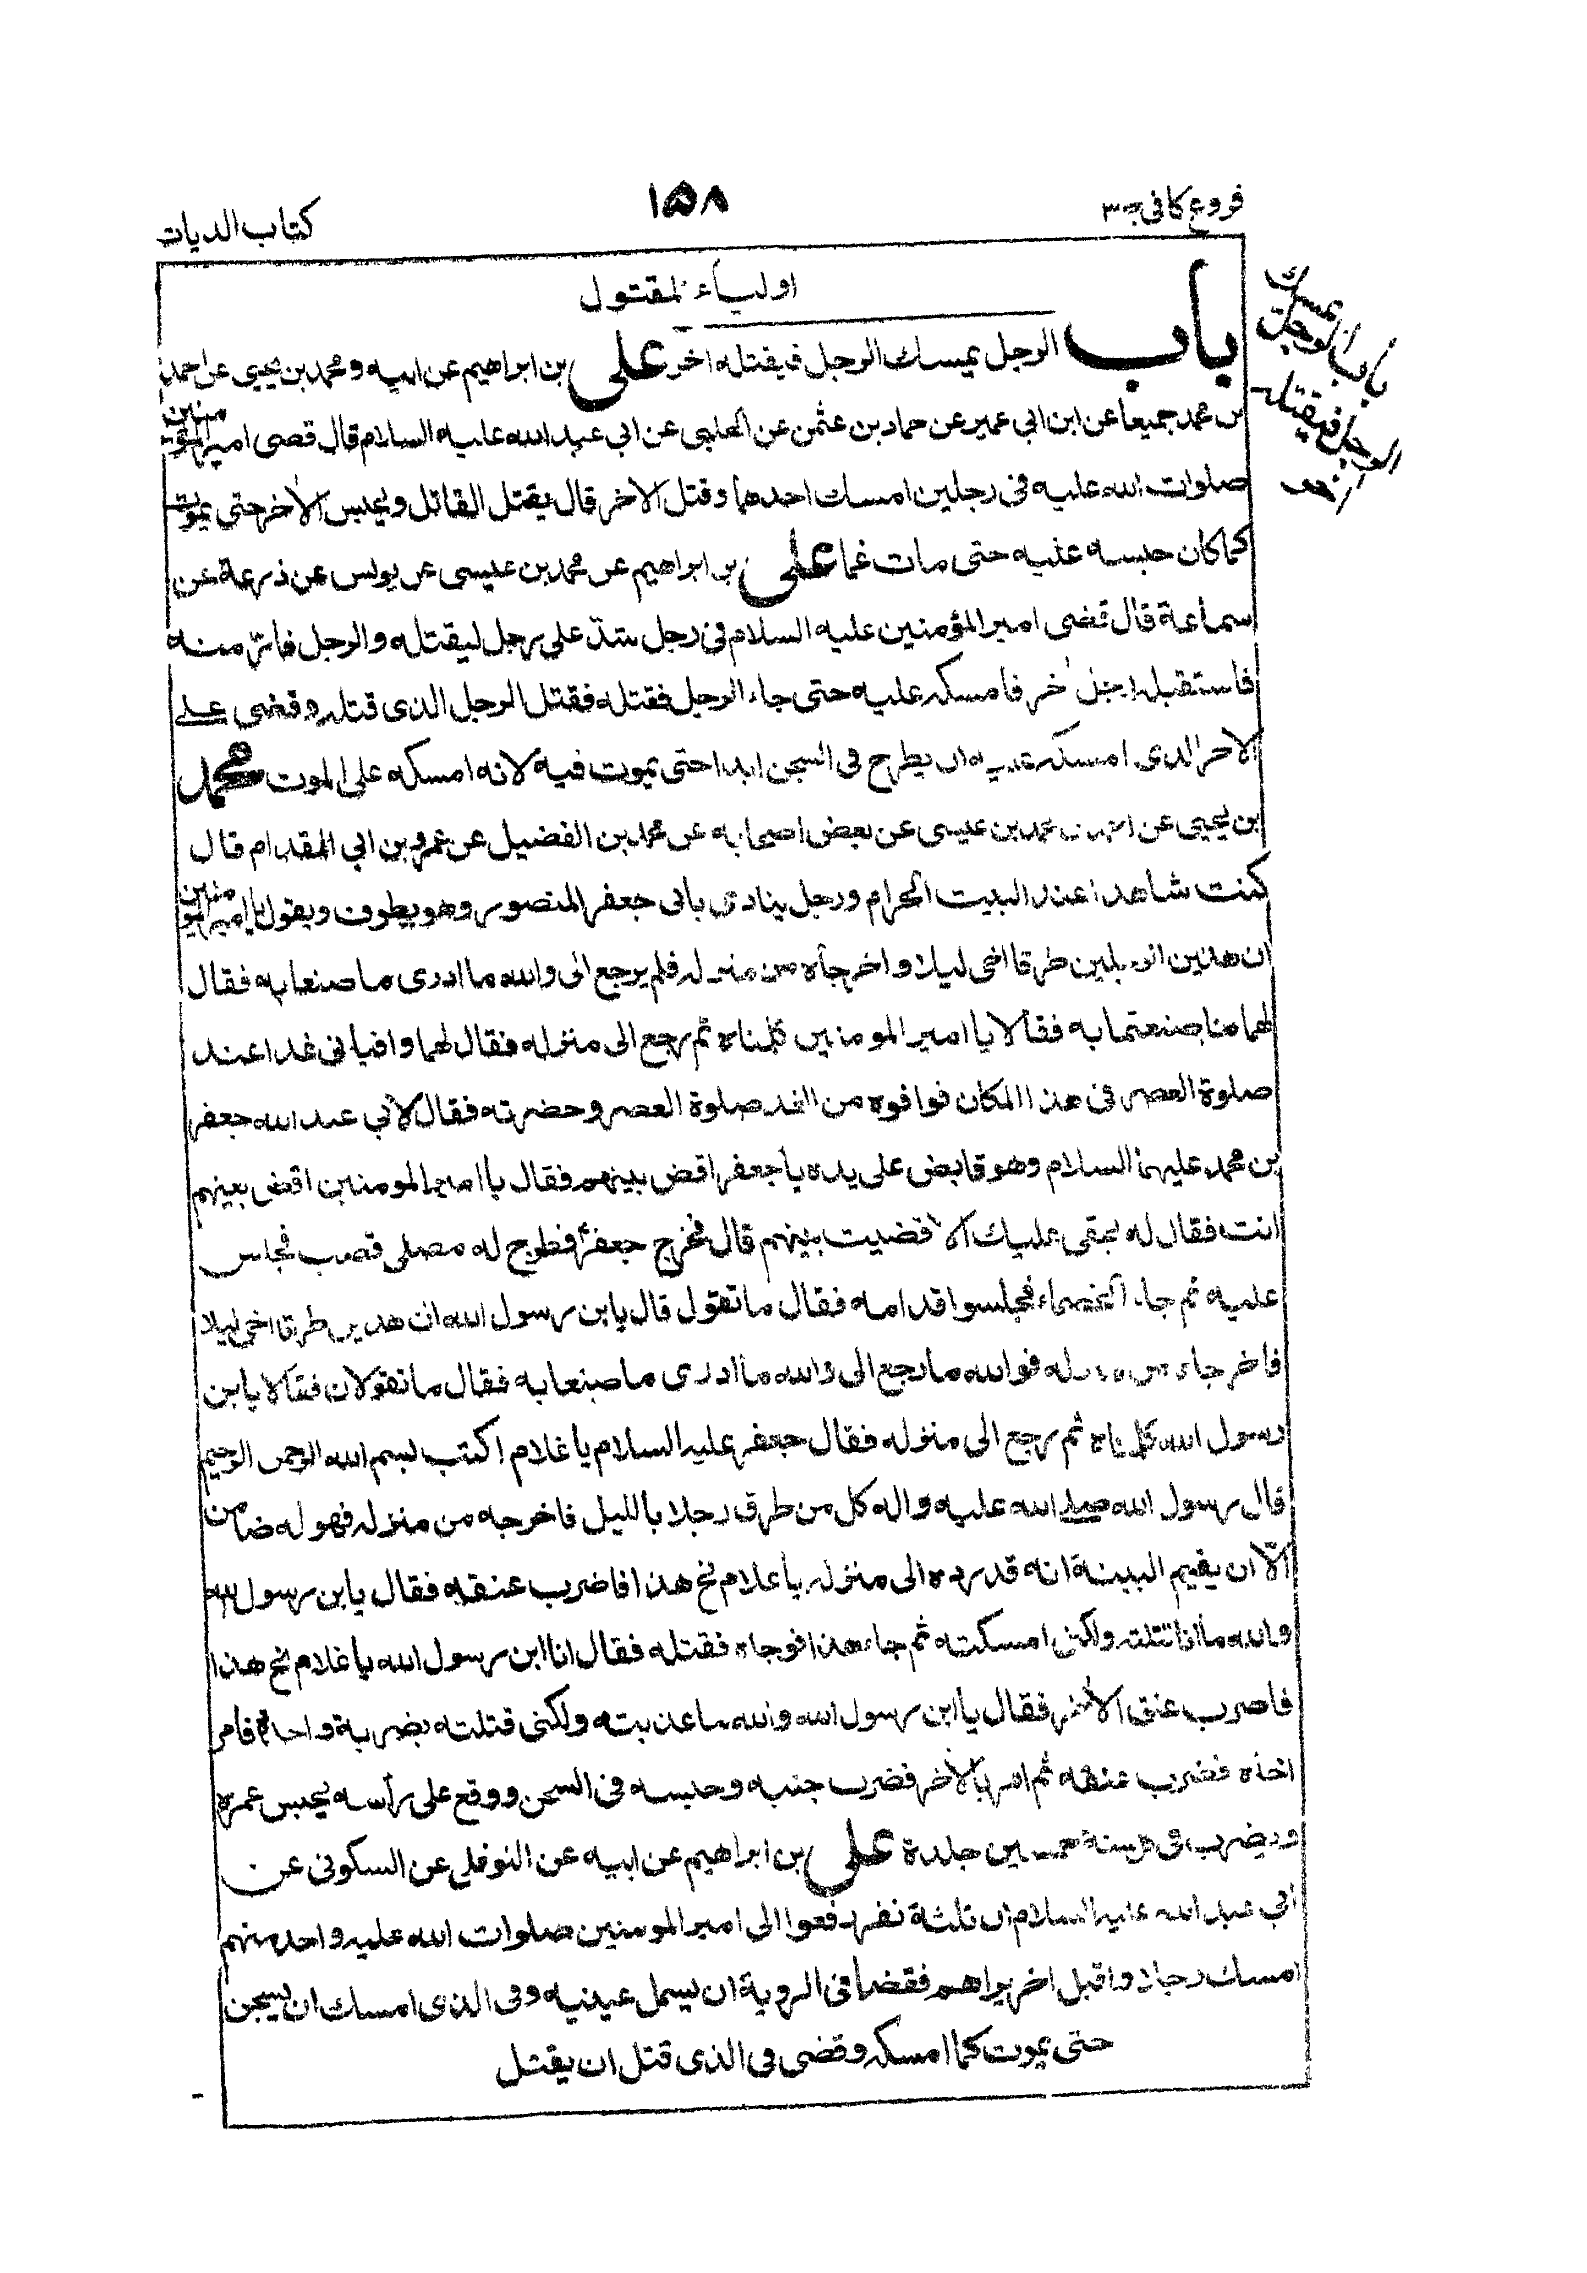 فروع كافى ج ٣
١٥٨
كتاب الديات
اولياء المقتول
باب الرجل يمسك الرجل فيقتله اخر على بن ابراهيم عن ابيه ومحمد بن يحيى عن احمد
بن محمد جميعا عن ابن ابي عمير عن حماد بن عثمن عن الحلبى عن ابى عبد الله عليه السلام قال قضى امير المؤمنين
صلوات الله عليه فى رجلين امسك احدهما وقتل الاخر قال يقتل القاتل ويحبس الاخر حتى يموت
كما كان حبسه عليه حتى مات غما على بن ابراهيم عن محمد بن عيسى عن يونس عن زرعة عن
سماعة قال قضى امير المؤمنين عليه السلام فى رجل شدّ على رجل ليقتله والرجل فارّ منه
فاستقبله رجل اخر فامسكه عليه حتى جاء الرجل فقتله فقتل الرجل الذى قتله وقضى على
الاخر الذى امسكه عليه ان يطرح فى السجن ابدا حتى يموت فيه لانه امسكه على الموت محمد
بن يحيى عن احمد بن محمد بن عيسى عن بعض اصحابه عن محمد بن الفضيل عن عمرو بن ابي المقدام قال
كنت شاهدا عند البيت الحرام ورجل ينادى بابى جعفر المنصور وهو يطوف ويقول يا امير المومنين
ان هذين الرجلين طرقا اخى ليلا واخرجاه من منزله فلم يرجع الى والله ما ادرى ما صنعا به فقال
لهما ما صنعتما به فقالا يا امير المومنين كلمناه ثم رجع الى منزله فقال لهما وافيانى غدا عند
صلوة العصر فى هذا المكان فوافوه من الغد صلوة العصر وحضرته فقال لأبي عبد الله جعفر
بن محمد عليهما السلام وهو قابض على يده يا جعفر اقض بينهم فقال يا امير المومنين اقض بينهم
انت فقال له بحقى عليك الا قضيت بينهم قال فخرج جعفر فطرح له مصلى قصب فجلس
عليه ثم جاء الخصماء فجلسوا قدامه فقال ما تقول قال يابن رسول الله ان هذين طرقا اخى ليلا
فاخرجاه من منزله فوالله ما رجع الى والله ما ادرى ما صنعا به فقال ما تقولان فقالا يابن
رسول الله كلمناه ثم رجع الى منزله فقال جعفر عليه السلام يا غلام اكتب بسم الله الرحمن الرحيم
قال رسول الله صلى الله عليه واله كل من طرق رجلا بالليل فاخرجه من منزله فهو له ضامن
الّا ان يقيم البينة انه قد رده الى منزله يا غلام نح هذا فاضرب عنقه فقال يابن رسول الله
والله ما انا قتلته ولكنى امسكته ثم جاء هذا فوجاه فقتله فقال انا ابن رسول الله يا غلام نح هذا
فاضرب عنق الاخر فقال يا ابن رسول الله والله ما عذبته ولكنى قتلته بضربة واحدة فامر
اخاه فضرب عنقه ثم امر بالاخر فضرب جنبه وحبسه فى السجن ووقع على رأسه يحبس عمره
ويضرب فى كل سنة خمسين جلدة على بن ابراهيم عن ابيه عن النوفلى عن السكونى عن
ابي عبد الله عليه السلام ان ثلثة نفر رفعوا الى امير المومنين صلوات الله عليه واحد منهم
امسك رجلا واقبل اخر يراهم فقضا فى الروية ان يسمل عينيه وفى الذى امسك ان يسجن
حتى يموت كما امسكه وقضى فى الذى قتل ان يقتل
باب ان الرجل يمسك
الرجل فيقتله
اخر